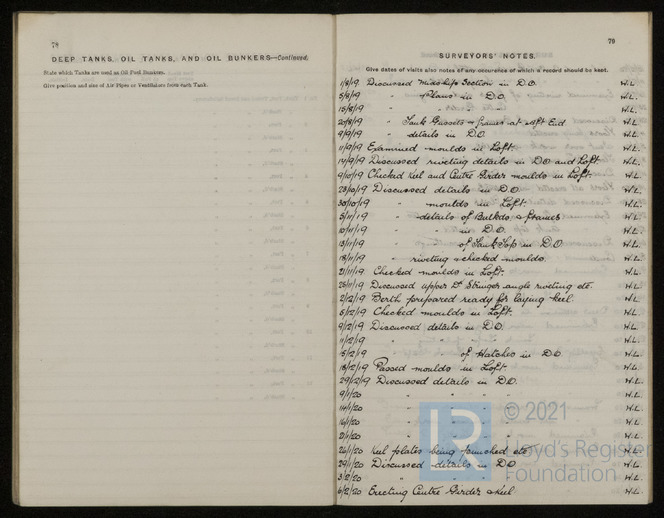 78
DEEP TANKS, OIL TANKS, AND OIL BUNKERS—Continued.
State which Tanks are used as Oil Fuel Bunkers.
Give position and size of Air Pipes or Ventilators from each Tank.
79
SURVEYORS' NOTES.
Give dates of visits also notes of any occurence of which a record should be kept.
1/8/19 Discussed Midship Section in D.O. H.L.
5/8/19 " Plans in D.O. H.L.
15/8/19 " " " H.L.
20/8/19 " Tank Gussets & frames at Aft End H.L.
9/9/19 " details in D.O. H.L.
11/9/19 Examined moulds in Loft. H.L.
14/9/19 Discussed riveting details in DO and Loft. H.L.
9/10/19 Checked Keel and Centre Girder moulds in Loft. H.L.
28/10/19 Discussed details in D.O. H.L.
30/10/19 " moulds in Loft. H.L.
5/11/19 " details of Bulkds. & frames H.L.
10/11/19 " " in D.O. H.L.
13/11/19 " " of Tank Top in D.O H.L.
18/11/19 " riveting & checked moulds. H.L.
21/11/19 Checked moulds in Loft. H.L.
25/11/19 Discussed upper Dk Stringer angle riveting etc. H.L.
2/12/19 Berth prepared ready for laying keel. H.L.
5/12/19 Checked moulds in Loft. H.L.
9/12/19 Discussed details in D.O. H.L.
11/12/19 " " " " H.L.
15/12/19 " " of Hatches in D.O. H.L.
18/12/19 Passed moulds in Loft. H.L.
29/12/19 Discussed details in D.O. H.L.
9/1/20 " " " " H.L.
14/1/20 " " " " H.L.
16/1/20 " " " " H.L.
21/1/20 " " " " H.L.
26/1/20 Keel plates being punched etc. H.L.
29/1/20 Discussed details in D.O H.L.
3/2/20 " " " " H.L.
6/2/20 Erecting Centre Girder & Keel H.L.
© 2021
LR
Lloyd's Register
Foundation